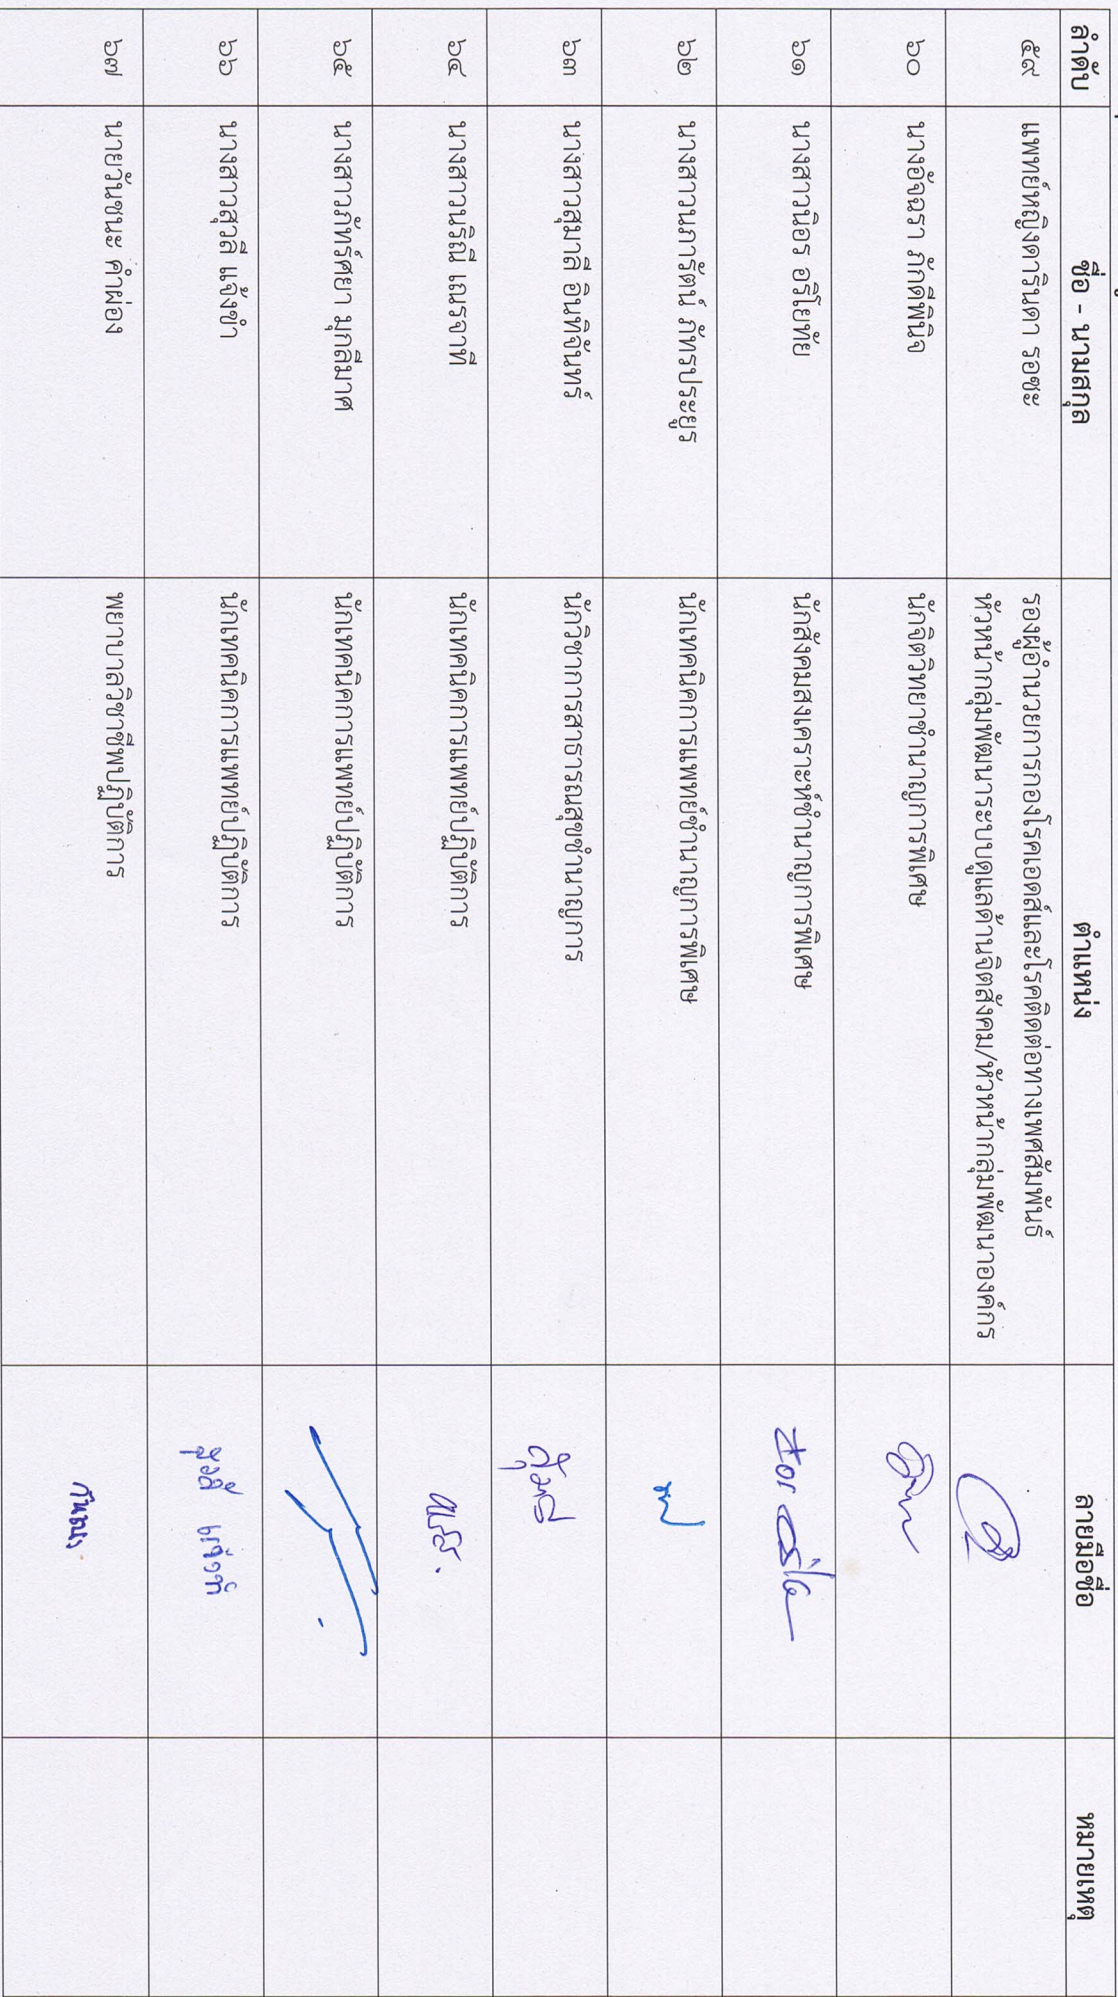 ลำดับ ชื่อ - นามสกุล ตำแหน่ง ลายมือชื่อ หมายเหตุ
๕๙ แพทย์หญิงดารินดา รอซะ รองผู้อำนวยการกองโรคเอดส์และโรคติดต่อทางเพศสัมพันธ์
หัวหน้ากลุ่มพัฒนาระบบดูแลด้านจิตสังคม/หัวหน้ากลุ่มพัฒนาองค์กร
๖๐ นางอัจฉรา ภักดีพินิจ นักจิตวิทยาชำนาญการพิเศษ
๖๑ นางสาวนิอร อริโยทัย นักสังคมสงเคราะห์ชำนาญการพิเศษ
๖๒ นางสาวนภารัตน์ ภัทรประยูร นักเทคนิคการแพทย์ชำนาญการพิเศษ
๖๓ นางสาวสุมาลี อินทิจันทร์ นักวิชาการสาธารณสุขชำนาญการ
๖๔ นางสาวนริณี เถนรจาที นักเทคนิคการแพทย์ปฏิบัติการ
๖๕ นางสาวภัทร์ศยา มุกลีมาศ นักเทคนิคการแพทย์ปฏิบัติการ
๖๖ นางสาวสุวลี แจ้งขำ นักเทคนิคการแพทย์ปฏิบัติการ
๖๗ นายวันชนะ คำผ่อง พยาบาลวิชาชีพปฏิบัติการ